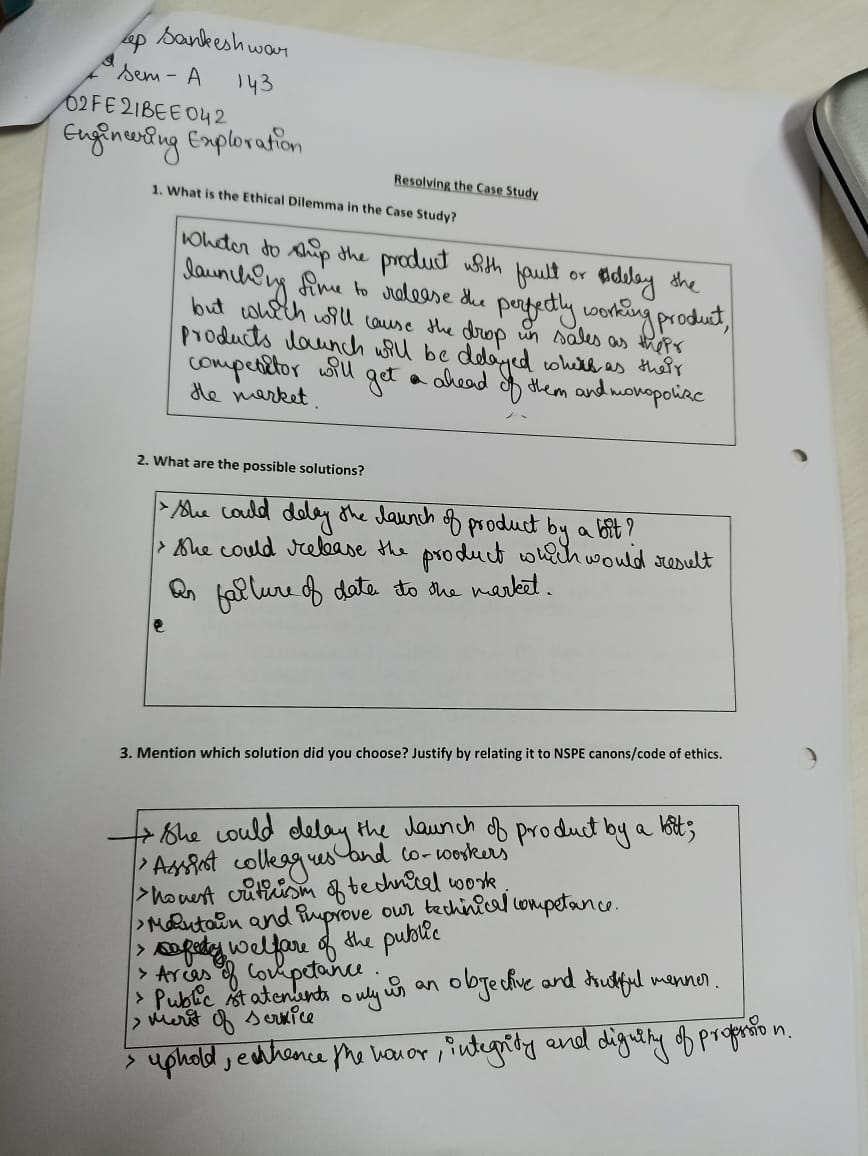 ep Sankeshwar
Sem - A 143
02FE21BEE042
Engineering Exploration
Resolving the Case Study
1. What is the Ethical Dilemma in the Case Study?
Wheter to ship the product with fault or delay the
launching time to release the perfectly working product,
but which will cause the drop in sales as their
products launch will be delayed where as their
competitor will get a ahead of them and monopolize
the market.
2. What are the possible solutions?
> She could delay the launch of product by a bit?
> She could release the product which would result
in failure of date to the market.
e
3. Mention which solution did you choose? Justify by relating it to NSPE canons/code of ethics.
→ She could delay the launch of product by a bit;
> Assist colleagues and co-workers
> honest criticism of technical work.
> Maintain and improve our techinical competance.
> welfare of the public
> Areas of Competance.
> Public statements only in an objective and truthful manner.
> Merit of service
> uphold, enhence the honor, integrity and dignity of profession.